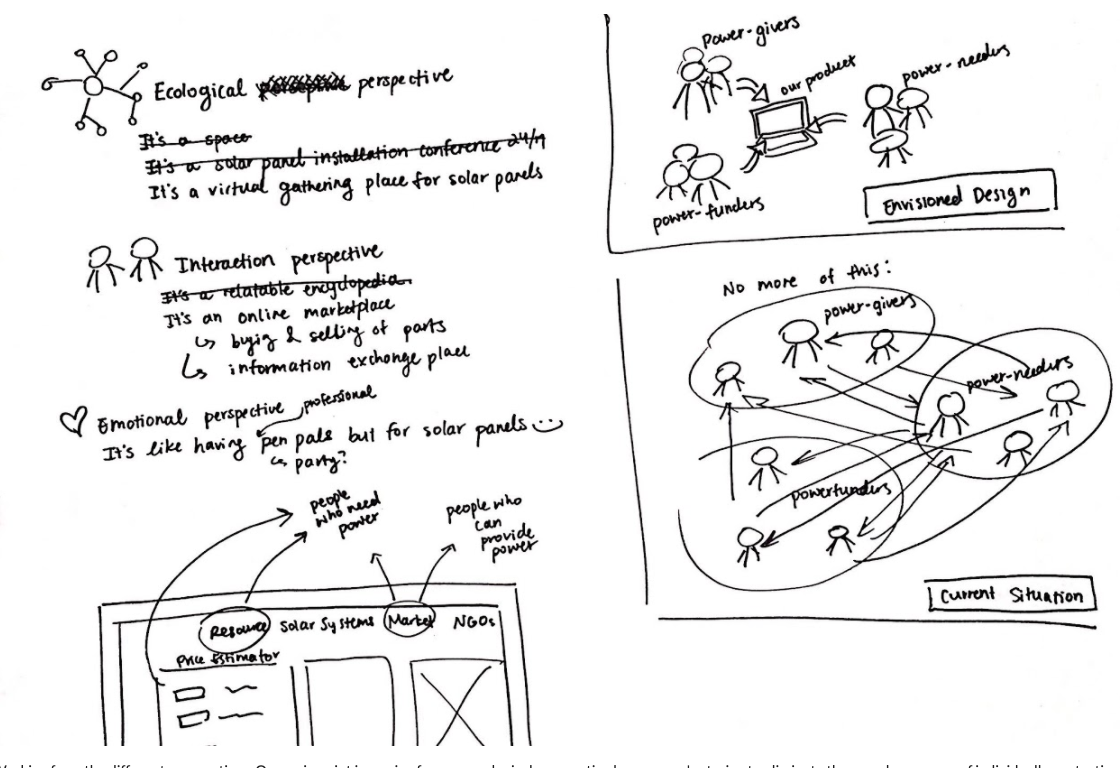 Ecological perspective
It's a space
It's a solar panel installation conference 24/7
It's a virtual gathering place for solar panels
Interaction perspective
It's a relatable encyclopedia.
It's an online marketplace
↳ buyig & selling of parts
↳ information exchange place
Emotional perspective
professional
It's like having pen pals but for solar panels
↳ party?
people
who need
power
people who
can
provide
power
Resource Solar Systems Market NGOs
Price Estimator
Power-givers
our product
power-needers
power-funders
Envisioned Design
No more of this:
power-givers
power-needers
powerfunders
Current Situation